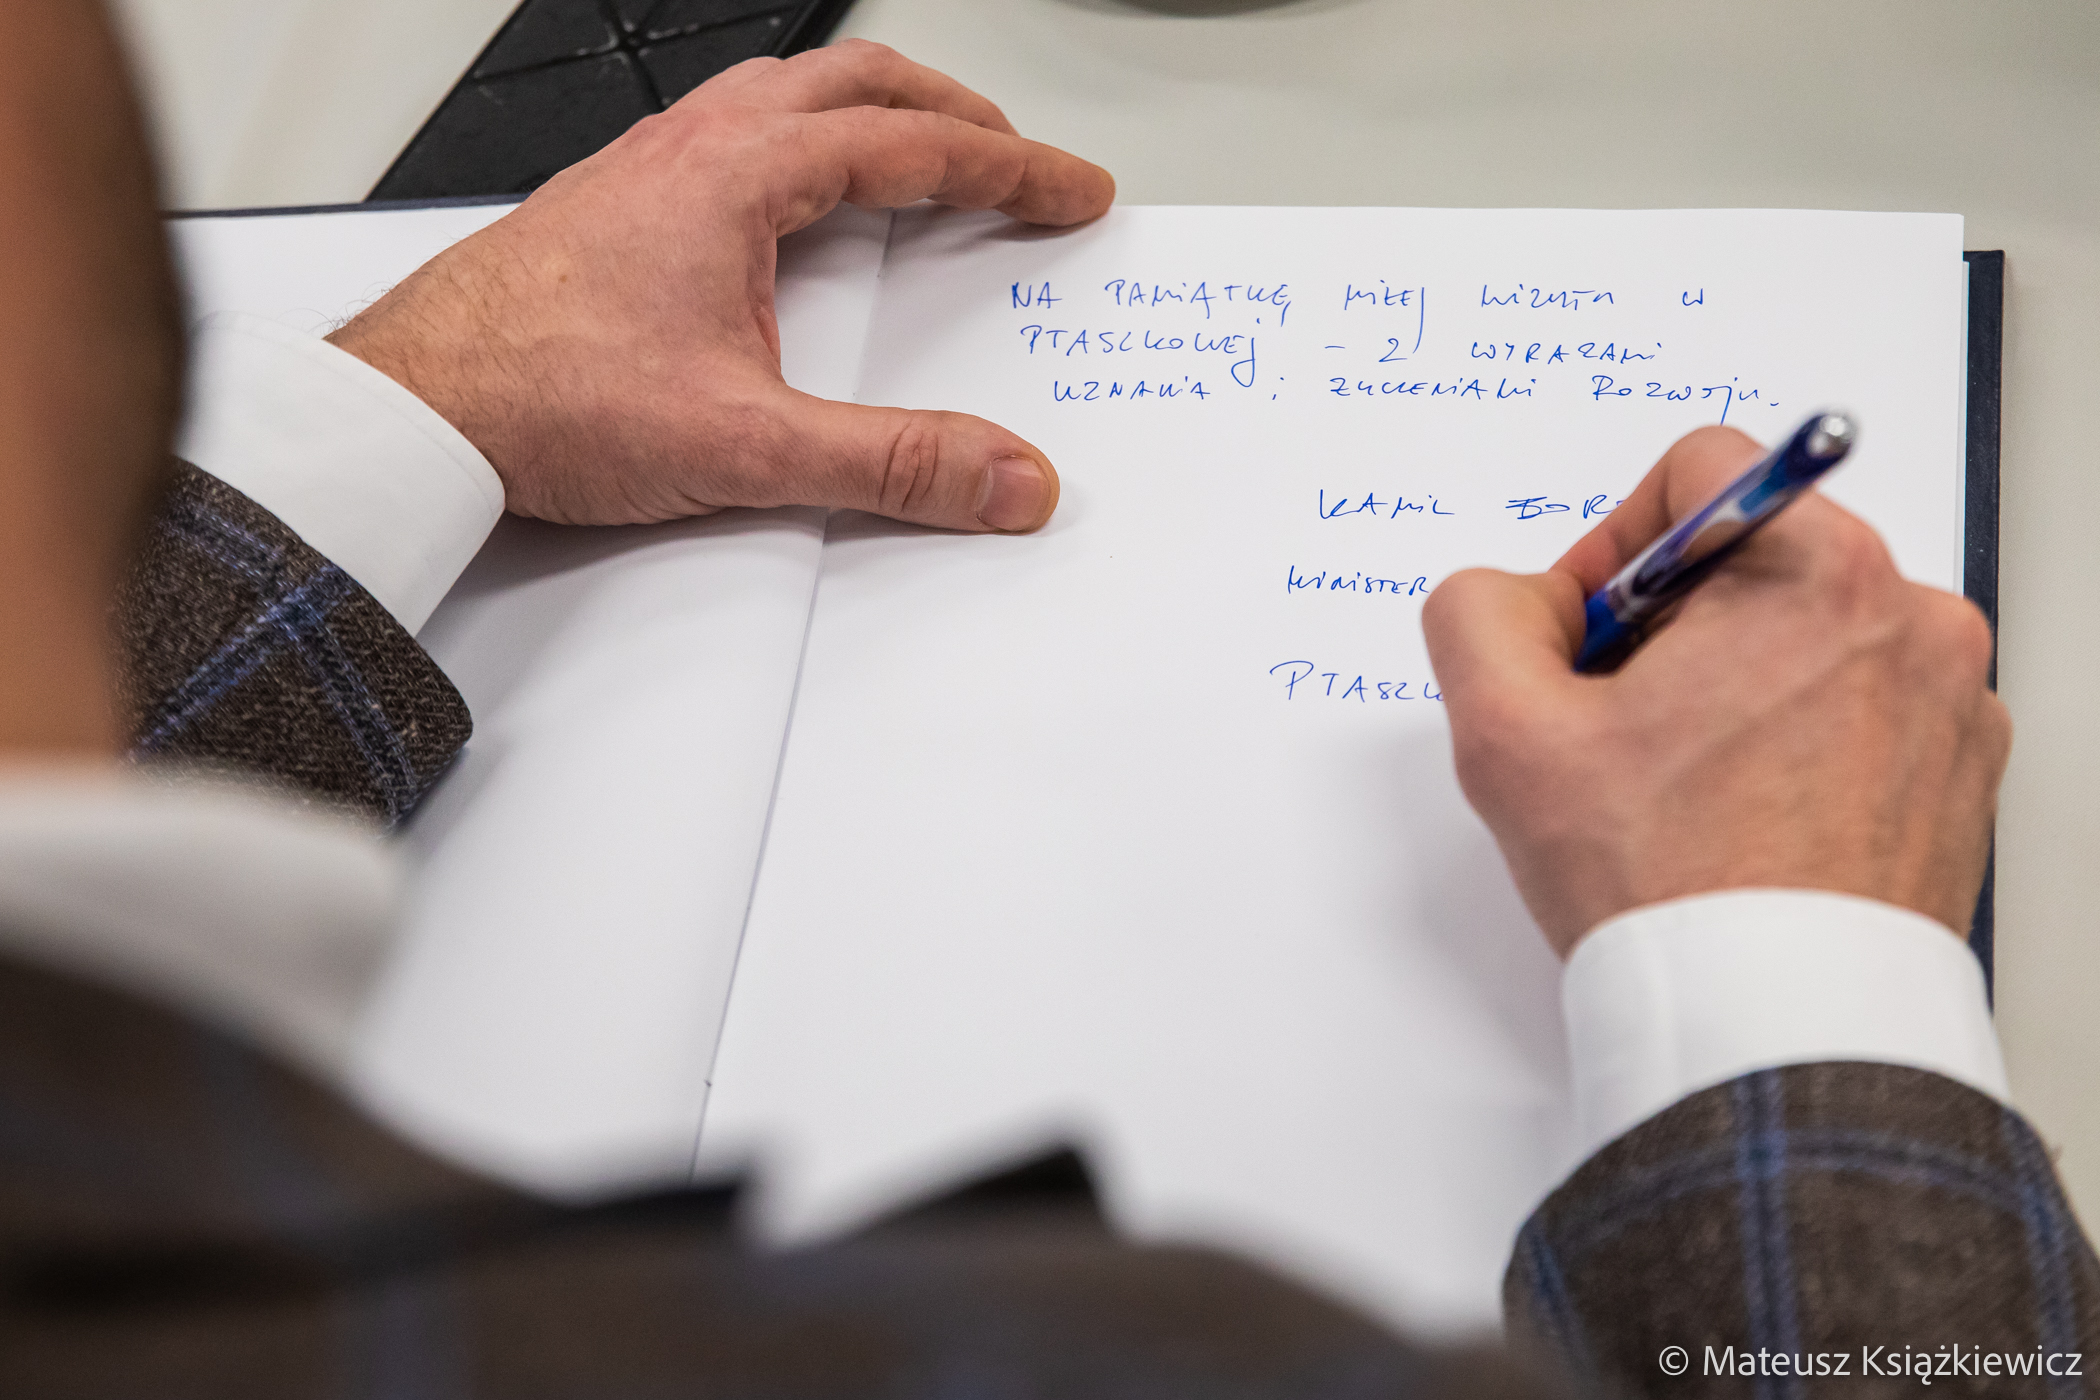 NA PAMIĄTKĘ MIŁEJ WIZYTY W
PTASZKOWEJ - Z WYRAZAMI
UZNANIA i ŻYCZENIAMI ROZWOJU.
KAMIL
MINISTER
© Mateusz Książkiewicz